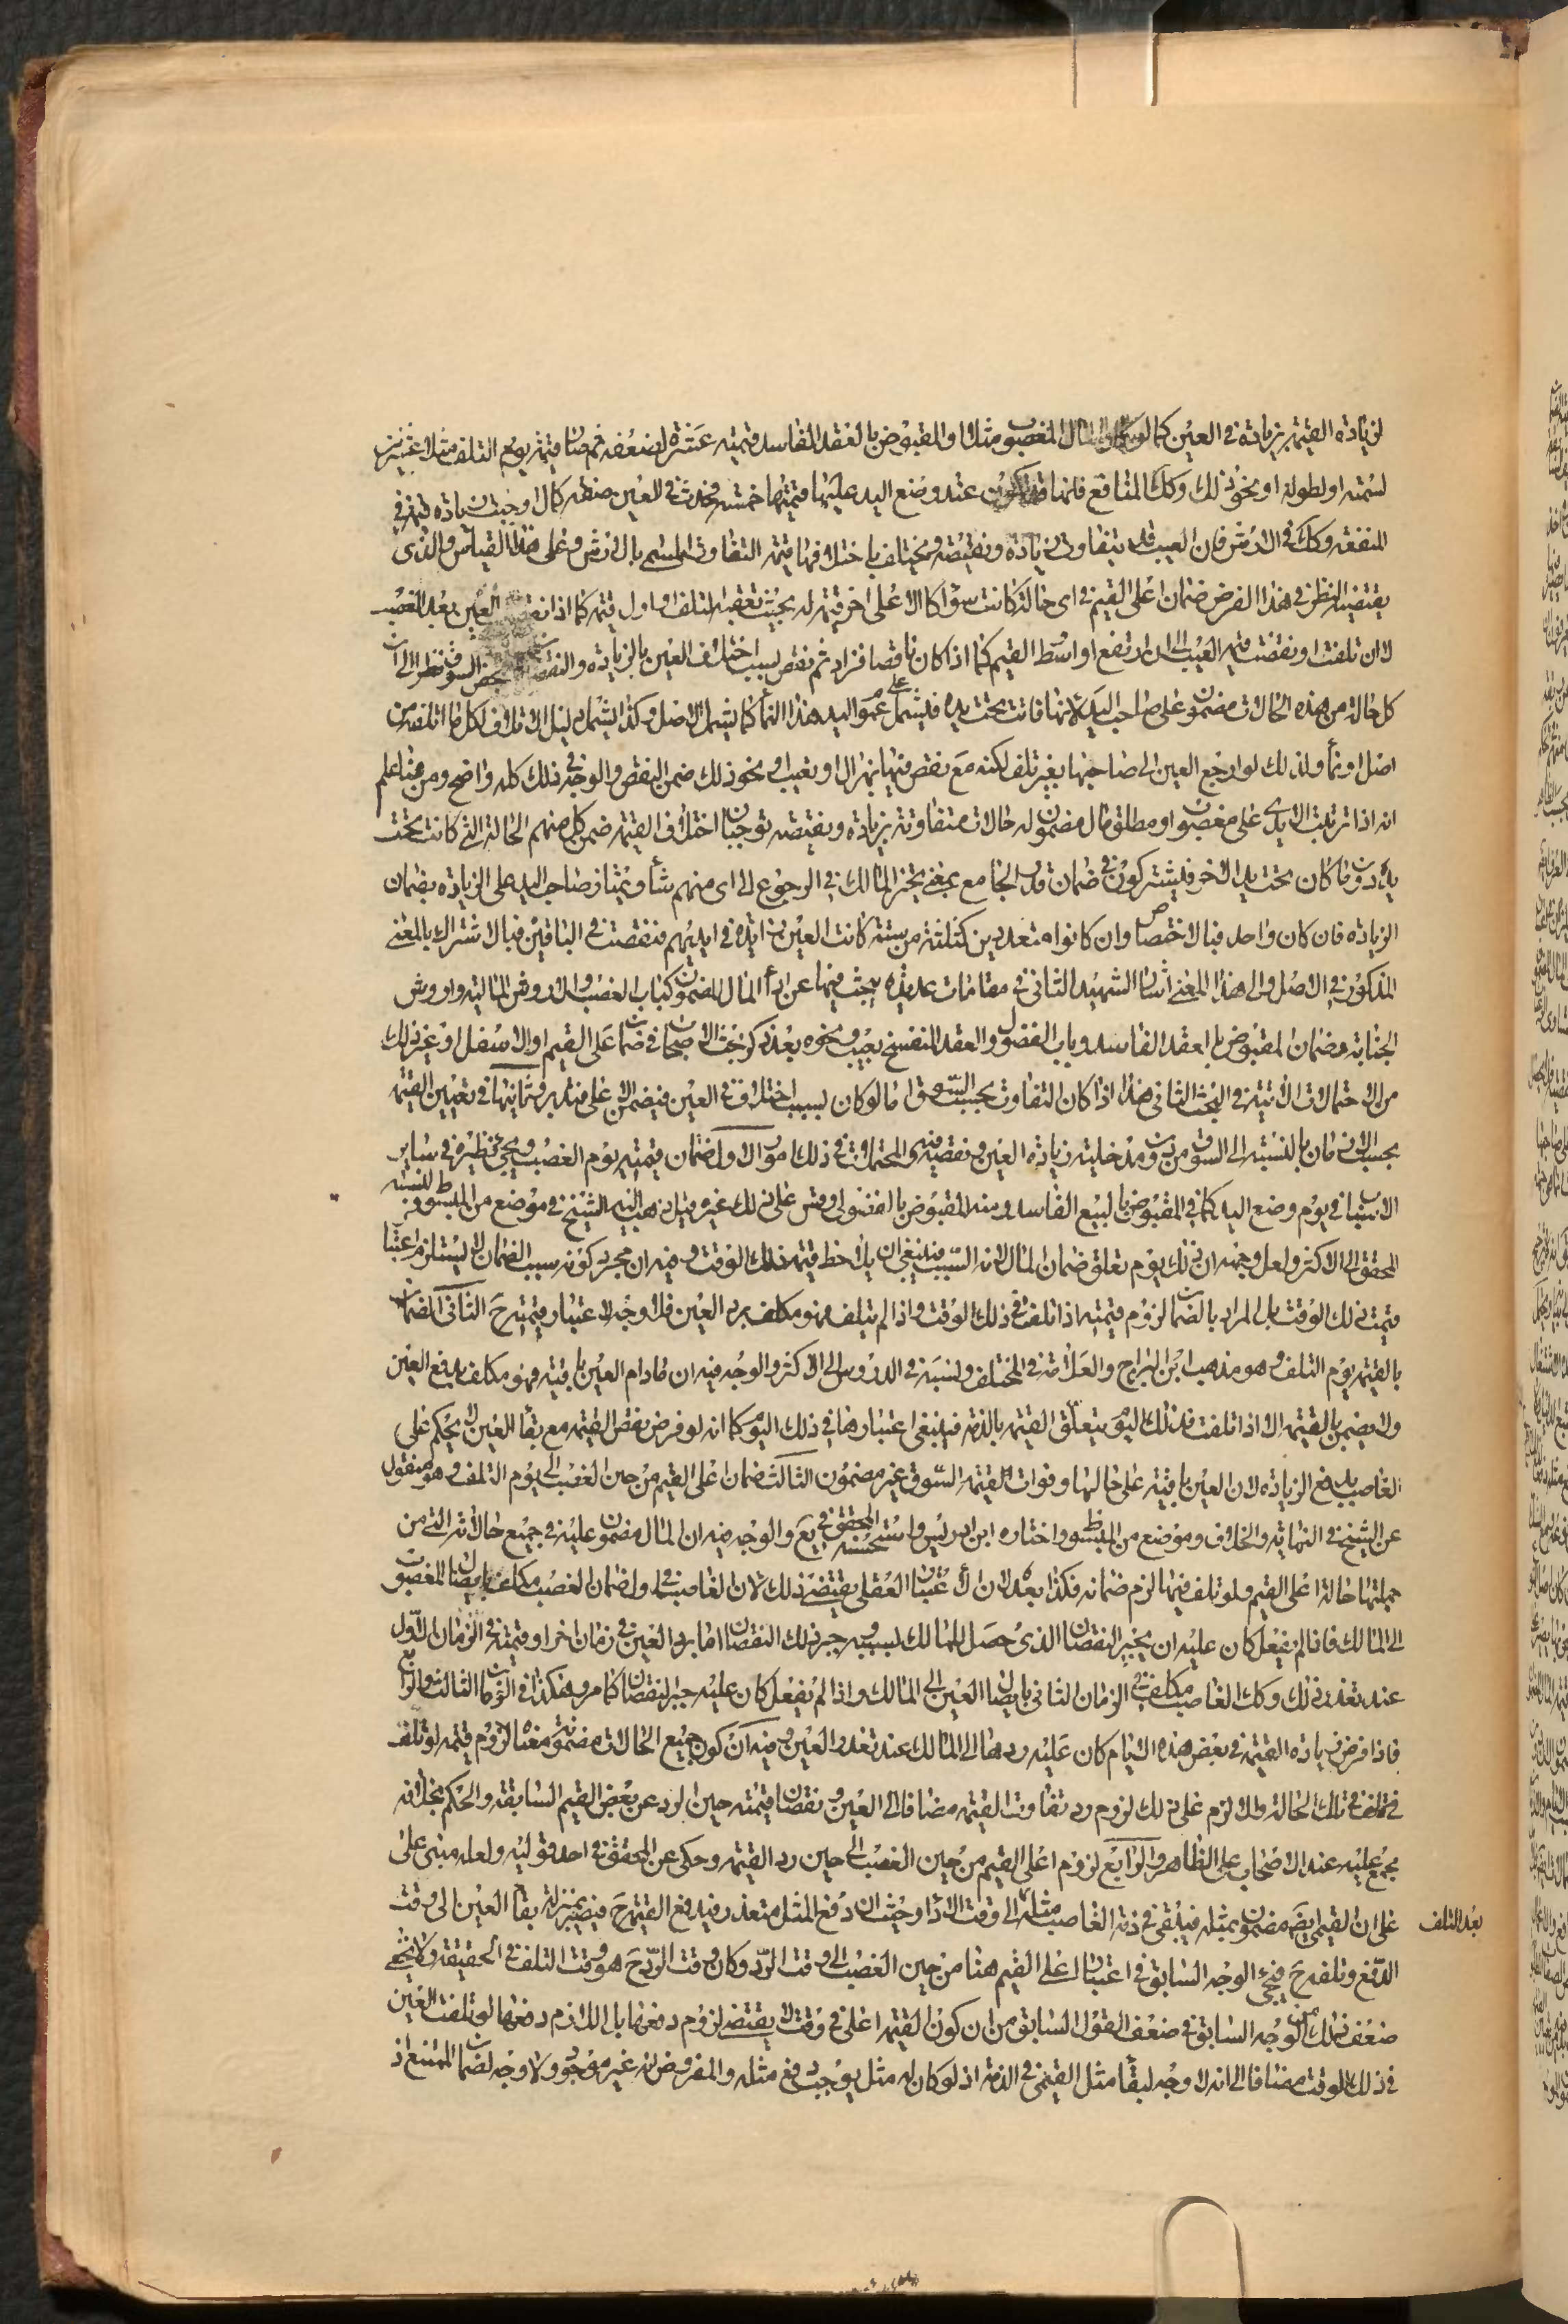 لزيادة القيمة بزيادة في العين كما لو كان المال المغصوب مثلا او المقبوض بالعقد الفاسد قيمته عشرة لضعفه ثم صار قيمته يوم التلف مثلا عشرين
لسمنه او لطوله او نحو ذلك وكك المنافع فانها قد تكون عند وضع اليد عليها قيمتها خمسة وحدث في العين صنعة كمال اوجبت زيادة قيمة في
المنفعة وكك في الارش فان العيب قد يتفاوت زيادة ونقيصة ويختلف باختلافها قيمة التفاوت المسمى بالارش وعلى هذا القياس والذي
يقتضيه النظر في هذا الفرض ضمان اعلى القيم في اى حالة كانت سواء كان الاعلى اخر قيمة له بحيث تعقبه التلف او اول قيمة كما اذا نقصت العين بعد الغصب
الى ان تلفت او نقصت قيمة العيب الى ان ارتفع او اسط القيم كما اذا كان ناقصا فزاد ثم نقص لسبب اختلاف العين بالزيادة والنقصان لا بمحض السوق نظرا الى ان
كل حالة من هذه الحالات مضمون على صاحب اليد لانها فاتت تحت يده فيشمل عموم على اليد هذا النماء كما يشمل الاصل وكذا يشمل دليل الاتلاف لكل ما اتلفه من
اصل او نماء ولذلك لو ارجع العين الى صاحبها بغير تلف لكنه مع نقص فيها بهزال او تعيب او نحو ذلك ضمن النقص والوجه في ذلك كله واضح ومن هنا علم
انه اذا ترتبت الايدى على مغصوب او مطلق مال مضمون له حالات متفاوتة بزيادة ونقيصة توجبان اختلاف القيمة ضمن كل منهم الحالة التي كانت تحت
يده دون ما كان تحت يد الاخر فيشتركون في ضمان قدر الجامع بمعنى تخير المالك في الرجوع الى اى منهم شاء ويمتاز صاحب اليد على الزيادة بضمان
الزيادة فان كان واحد فبالاختصاص وان كانوا متعددين كثلثة من ستة كانت العين زائدة في ايديهم فنقصت في الباقين فبالاشتراك بالمعنى
المذكور في الاصل والى هذا المعنى اشار الشهيد الثاني في مقامات عديدة يبحث فيها عن اداء المال المضمون ككتاب الغصب والاروش المالية واروش
الجناية وضمان المقبوض بالعقد الفاسد وباب الفضولى والعقد المنفسخ بعيب ونحوه بعد ذكر بحث الاصحاب في ضمان اعلى القيم او الاسفل او غير ذلك
من الاحتمالات الاتية في البحث الثاني هذا اذا كان التفاوت بحسب السوق اما لو كان بسبب اختلاف في العين فيضمن الاعلى فتدبر وثانيها في تعيين القيمة
بحسب الازمان بالنسبة الى السوق من دون مدخلية زيادة العين ونقصه فيه والمحتملات في ذلك امور الاول ضمان قيمته يوم الغصب ويجيء نظيره في ساير
الاسباب في يوم وضع اليد كما في المقبوض بالبيع الفاسد ومنه المقبوض بالفضولى وقس على ذلك غيره قيل ذهب اليه الشيخ في موضع من المبسوط ونسبه
المحقق الى الاكثر ولعل وجهه ان ذلك يوم تعلق ضمان المال لانه السبب فينبغي ان يلاحظ قيمة ذلك الوقت وفيه ان مجرد كونه سبب الضمان لا يستلزم اعتبار
قيمة ذلك الوقت بل المراد بالضمان لزوم قيمته اذا تلف في ذلك الوقت واذا لم يتلف فهو مكلف برد العين فلا وجه لاعتبار قيمته ح الثاني الضمان
بالقيمة يوم التلف وهو مذهب ابن البراج والعلامة في المختلف ونسبه في الدروس الى الاكثر والوجه فيه ان مادام العين باقية فهو مكلف بدفع العين
ولا يضمن بالقيمة الا اذا تلفت فذلك اليوم يتعلق القيمة بالذمة فينبغي اعتبارها في ذلك اليوم كما انه لو فرض نقص القيمة مع بقاء العين لا يحكم على
الغاصب بدفع الزيادة لان العين باقية على حالها وفوات القيمة السوق غير مضمون الثالث ضمان اعلى القيم من حين الغصب الى يوم التلف وهو منقول
عن الشيخ في النهاية والخلاف وموضع من المبسوط واختاره ابن ادريس واستحسنه المحقق في يع والوجه فيه ان المال مضمون عليه في جميع حالاته التي من
جملتها حالة اعلى القيم ولو تلف فيها لزم ضمانه فكذا بعده لان الاعتبار العقلى يقتضى ذلك لان الغاصب في اول ضمان الغصب مكلف بايصال المغصوب
الى المالك فاذا لم يفعل كان عليه ان يجبر النقصان الذى حصل للمالك بسببه وجبر ذلك النقصان اما برد العين في زمان اخر او قيمته في الزمان الاول
عند تعذر ذلك وكك الغاصب مكلف في الزمان الثاني بايصال العين الى المالك واذا لم يفعل كان عليه جبر النقصان كما مر وهكذا في الزمان الثالث والرابع
فاذا فرض زيادة القيمة في بعض هذه الايام كان عليه ردها الى المالك عند تعذر العين وفيه ان كون جميع الحالات مضمونة معناه لزوم قيمته لو تلف
في تلك الحالة والا لزم على ذلك لزوم رد تفاوت القيمة مضافا الى العين لو نقصان قيمته حين الرد عن بعض القيم السابقة والحكم بخلافه
مجمع عليه عند الاصحاب على الظاهر والرابع لزوم اعلى القيم من حين الغصب الى حين رد القيمة وحكى عن المحقق في احد قوليه ولعله مبنى على
على ان القيمى ايضا مضمون بمثله فيبقى في ذمة الغاصب مثله الى وقت الاداء وحيث ان دفع المثل متعذر فيدفع القيمة ح فيصير بمنزلة بقاء العين الى وقت
بعد التلف
الدفع وتلفه ح فيجيء الوجه السابق في اعتبار اعلى القيم هنا من حين الغصب الى وقت الرد وكان وقت الرد ح هو وقت التلف في الحقيقة ولا يخفى
ضعف ذلك من الوجه السابق في ضعف القول السابق من ان كون القيمة اعلى في وقت لا يقتضى لزوم دفعها بل اللازم دفعها لو تلفت العين
في ذلك الوقت مضافا الى انه لا وجه لبقاء مثل القيمى في الذمة اذ لو كان له مثل يوجب دفع مثله والمفروض انه غير موجود ولا وجه لضمان الممتنع اذ